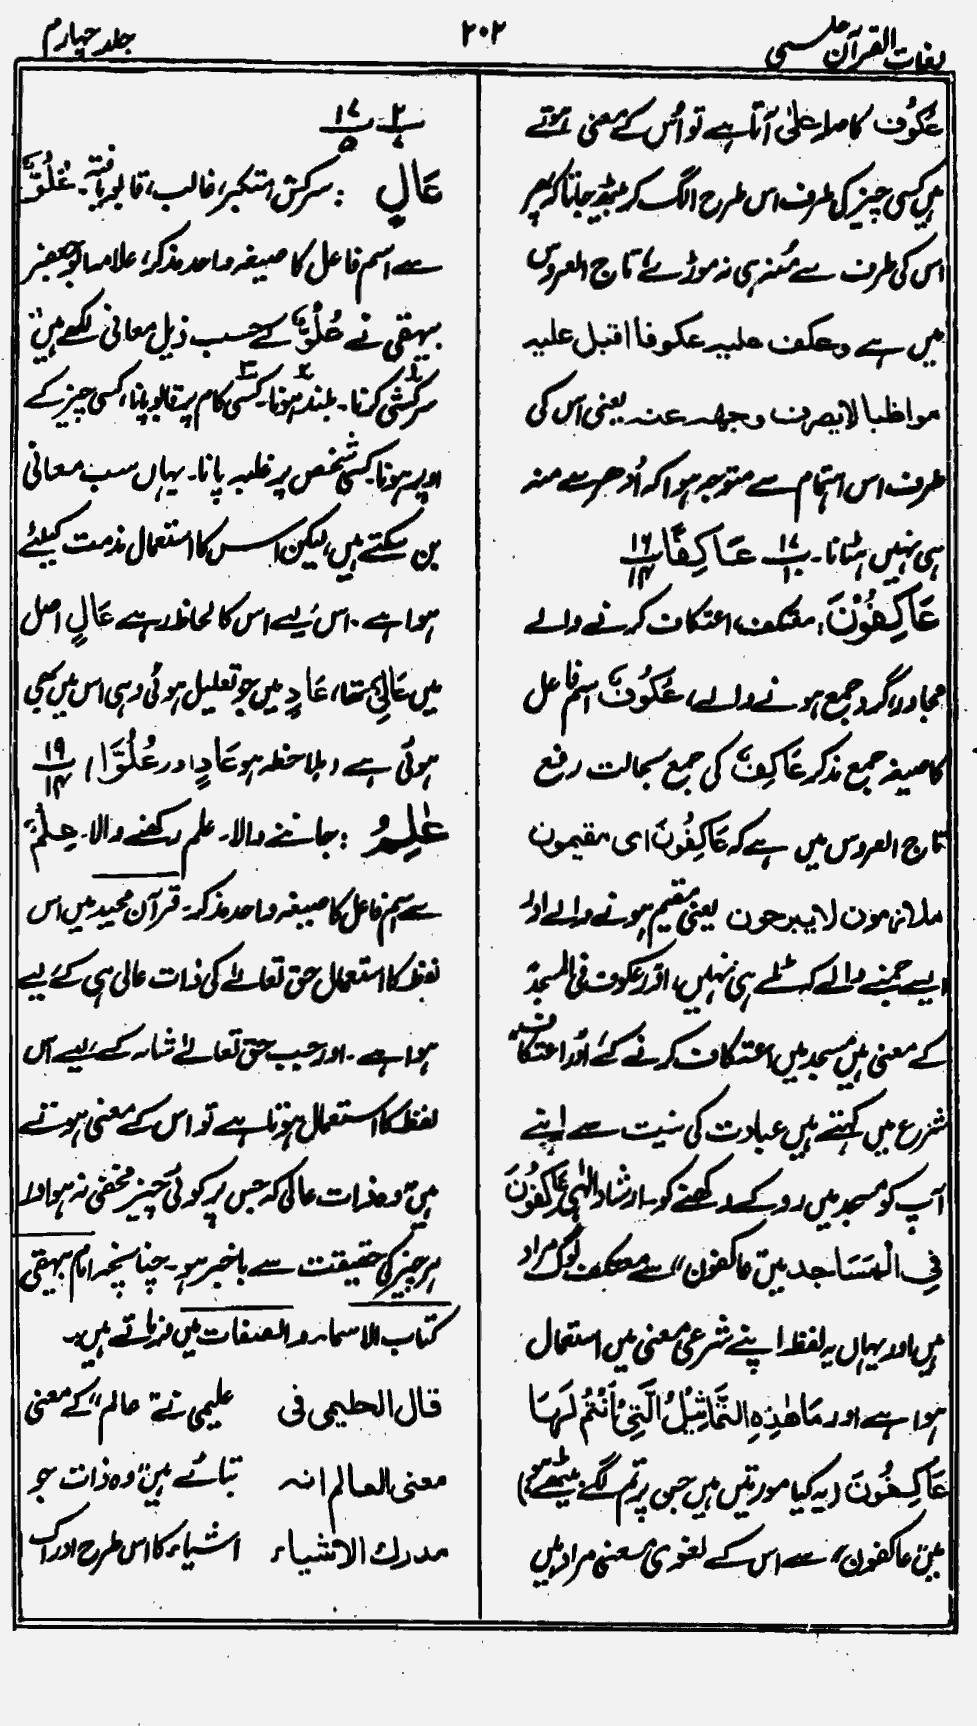 لغات القرآن جلد
۲۰۲
جلد چہارم
عُکُوف کا صلہ علیٰ آتا ہے تو اُس کے معنی ہوتے
ہیں کسی چیز کی طرف اس طرح الگ کر بیٹھ جانا کہ پھر
اس کی طرف سے مُنہ ہی نہ موڑے، تاج العروس
میں ہے وعکف علیہ عکوفا اقبل علیہ
مواظبا لا یصرف وجہہ عنہ یعنی اس کی
طرف اس اہتمام سے متوجہ ہوا کہ اُدھر سے منہ
ہی نہیں ہٹاتا۔ ۱۷/۱۰ عَاکِفًا ۱۶/۱۴
عَاکِفُوْنَ، معتکف، اعتکاف کرنے والے
مجاور، گرد جمع ہونے والے، عُکُوفٌ اسم فاعل
کا صیغہ جمع مذکر عَاکِفٌ کی جمع بحالت رفع
تاج العروس میں ہے کہ عَاکِفُونَ ای مقیمون
ملازمون لا یبرحون یعنی مقیم ہونے والے اور
ایسے جمنے والے کہ ٹلے ہی نہیں، اور عکوف فی المسجد
کے معنی ہیں مسجد میں اعتکاف کرنے کے اور اعتکاف
شرع میں کہتے ہیں عبادت کی نیت سے اپنے
آپ کو مسجد میں روکے رکھنے کو۔ ارشاد الٰہی عَاکِفُوْنَ
فِی الْمَسَاجِد میں "عاکفون" سے معتکف لوگ مراد
ہیں اور یہاں یہ لفظ اپنے شرعی معنی میں استعمال
ہوا ہے اور مَا هٰذِهِ التَّمَاثِيْلُ الَّتِيْ أَنْتُمْ لَهَا
عَاكِفُوْنَ (یہ کیا مورتیں ہیں جن پر تم لگے بیٹھے ہو)
میں "عاکفون" سے اس کے لغوی معنی مراد ہیں
۲ ۱۷/۵
عَالٍ : سرکش، متکبر، غالب، قابو یافتہ۔ عُلُوٌّ
سے اسم فاعل کا صیغہ واحد مذکر، علامہ ابو جعفر
بیہقی نے عُلُوٌّ کے حسب ذیل معانی لکھے ہیں
سرکشی کرنا۔ بلند ہونا۔ کسی کام پر قابو پانا، کسی چیز کے
اوپر ہونا۔ کسی شخص پر غلبہ پانا۔ یہاں سب معانی
بن سکتے ہیں، لیکن اس کا استعمال مذمت کیلئے
ہوا ہے۔ اس لیے اس کا لحاظ رہے عَالٍ اصل
میں عَالِیٌ تھا، عَادٍ میں جو تعلیل ہوئی وہی اس میں بھی
ہوئی ہے (ملاحظہ ہو عَادٍ اور عُلُوًّا) ۱۹/۱۴
عٰلِمُ : جاننے والا۔ علم رکھنے والا۔ عِلْمٌ
سے اسم فاعل کا صیغہ واحد مذکر۔ قرآن مجید میں اس
لفظ کا استعمال حق تعالےٰ کی ذات عالی ہی کے لیے
ہوا ہے۔ اور جب حق تعالےٰ شانہ کے لیے اس
لفظ کا استعمال ہوتا ہے تو اس کے معنی ہوتے
ہیں وہ ذات عالی کہ جس پر کوئی چیز مخفی نہ ہو اور
ہر چیز کی حقیقت سے باخبر ہو۔ چنانچہ امام بیہقی
کتاب الاسماء والصفات میں فرماتے ہیں۔
قال الحلیمی فی حلیمی نے "عالم" کے معنی
معنی العالم انہ بتائے ہیں "وہ ذات جو
مدرك الاشیاء اشیاء کا اس طرح ادراک